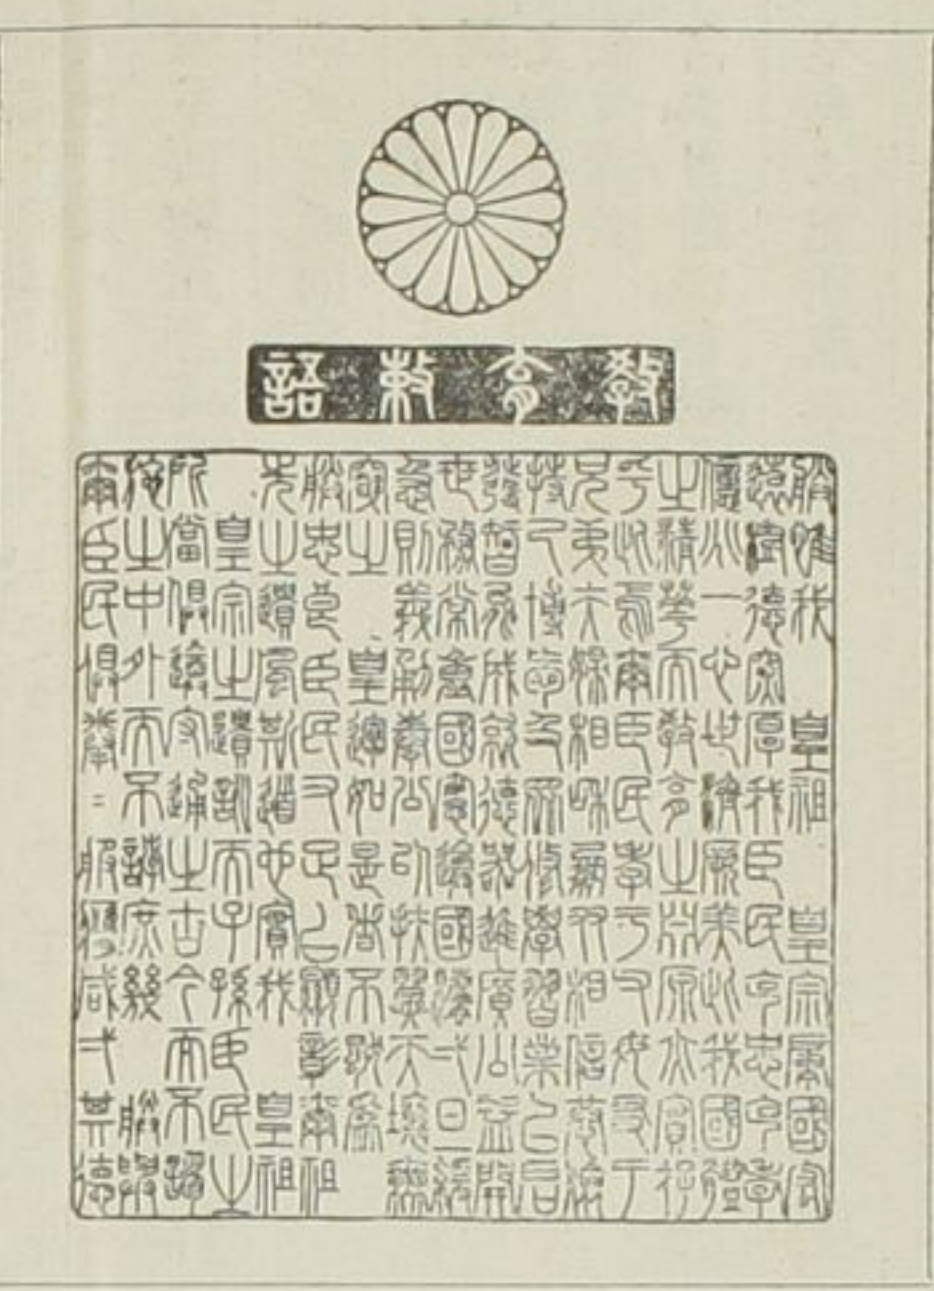 教育敕語
朕惟我　皇祖　皇宗肇國宏
遠樹德深厚我臣民克忠克孝
億兆一心世濟厥美此我國體
之精華而教育之淵源亦實存
乎此焉爾臣民孝于父母友于
兄弟夫婦相和朋友相信恭儉
持己博愛及衆修學習業以啟
發智能成就德器進廣公益開
世務常重國憲遵國法一旦緩
急則義勇奉公以扶翼天壤無
窮之　皇運如是者不獨爲
朕忠良臣民又足以顯彰爾祖
先之遺風斯道也實我　皇祖
皇宗之遺訓而子孫臣民之
所當俱遵守通之古今而不謬
施之中外而不誖庶幾　朕與
爾臣民俱拳〻服膺咸弌其德